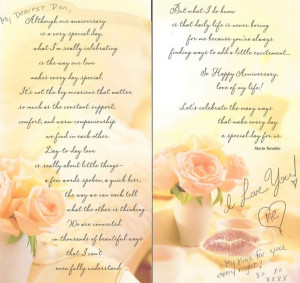 My Dearest Dan,
Although our anniversary
is a very special day,
what I'm really celebrating
is the way our love
makes every day special.
It's not the big occasions that matter
so much as the constant support,
comfort, and warm companionship
we find in each other.
Day-to-day love
is really about little things—
a few words spoken, a quick kiss,
the way we can each tell
what the other is thinking.
We are connected
in thousands of beautiful ways
that I can't
even fully understand.
But what I do know
is that daily life is never boring
for me because you're always
finding ways to add a little excitement...
So Happy Anniversary,
love of my life!
Let's celebrate the many ways
that make every day
a special day for us.
I Love You!
Me
My Kiss for you
every night!
xo xo
xxxx